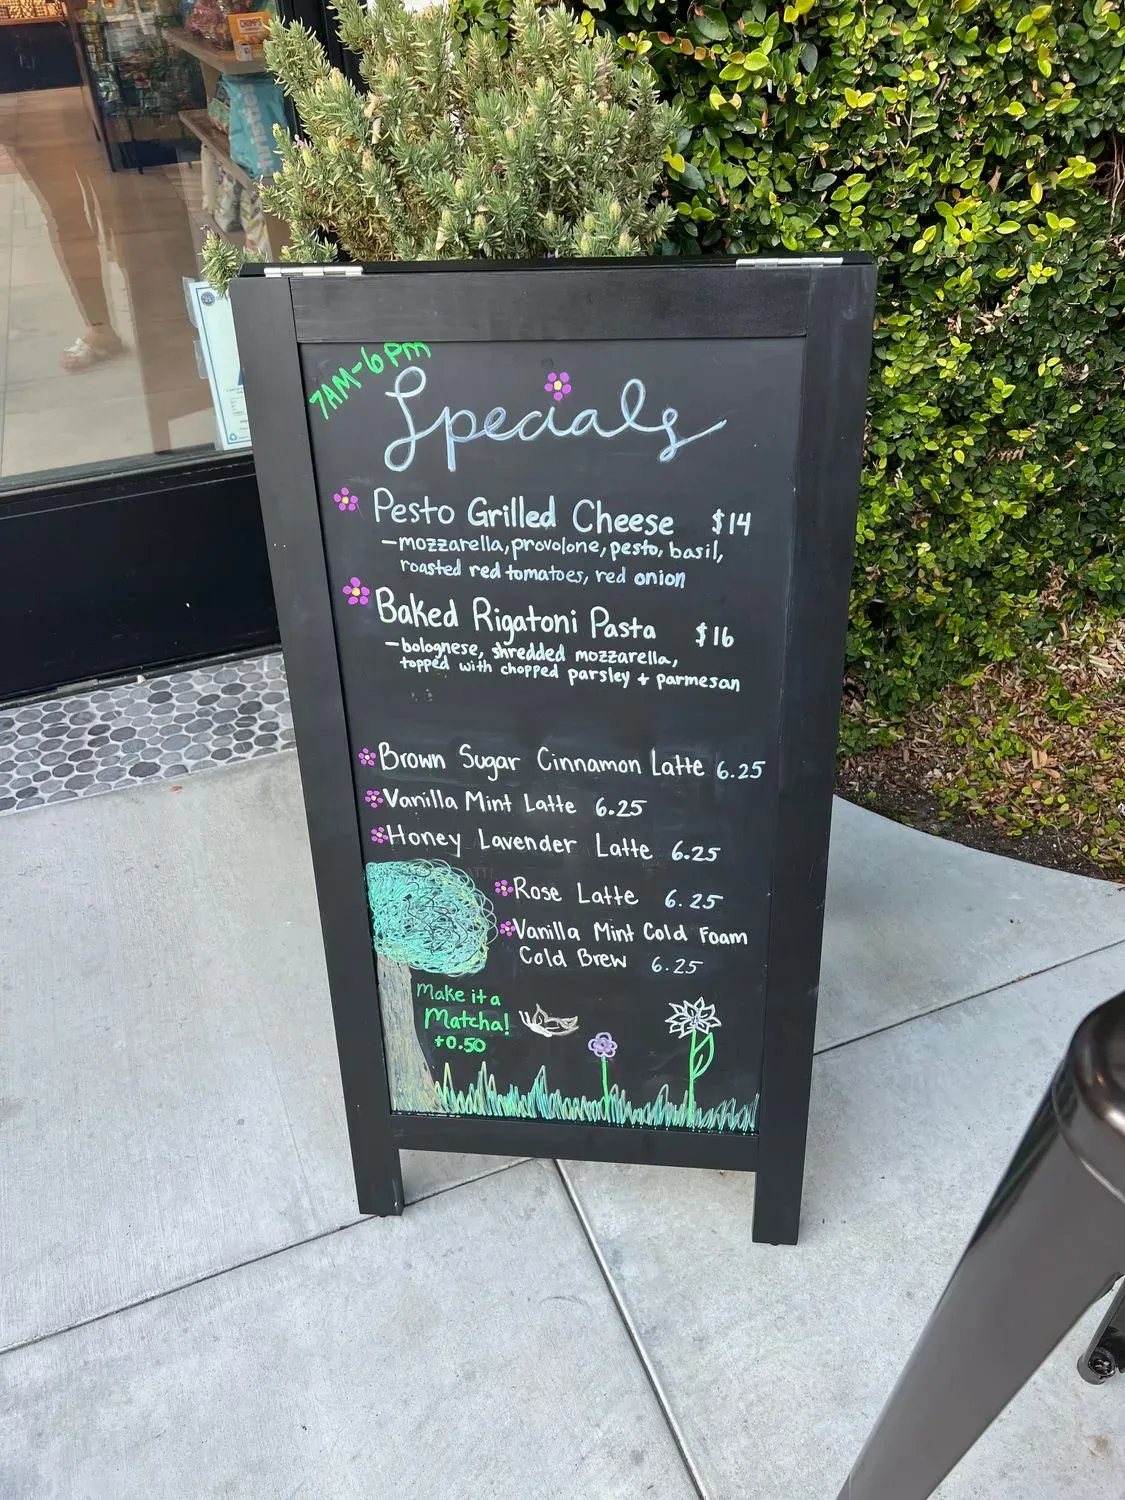 7AM-6PM
Specials
Pesto Grilled Cheese $14
-mozzarella, provolone, pesto, basil,
roasted red tomatoes, red onion
Baked Rigatoni Pasta $16
-bolognese, shredded mozzarella,
topped with chopped parsley + parmesan
Brown Sugar Cinnamon Latte 6.25
Vanilla Mint Latte 6.25
Honey Lavender Latte 6.25
Rose Latte 6.25
Vanilla Mint Cold Foam
Cold Brew 6.25
Make it a
Matcha!
+0.50